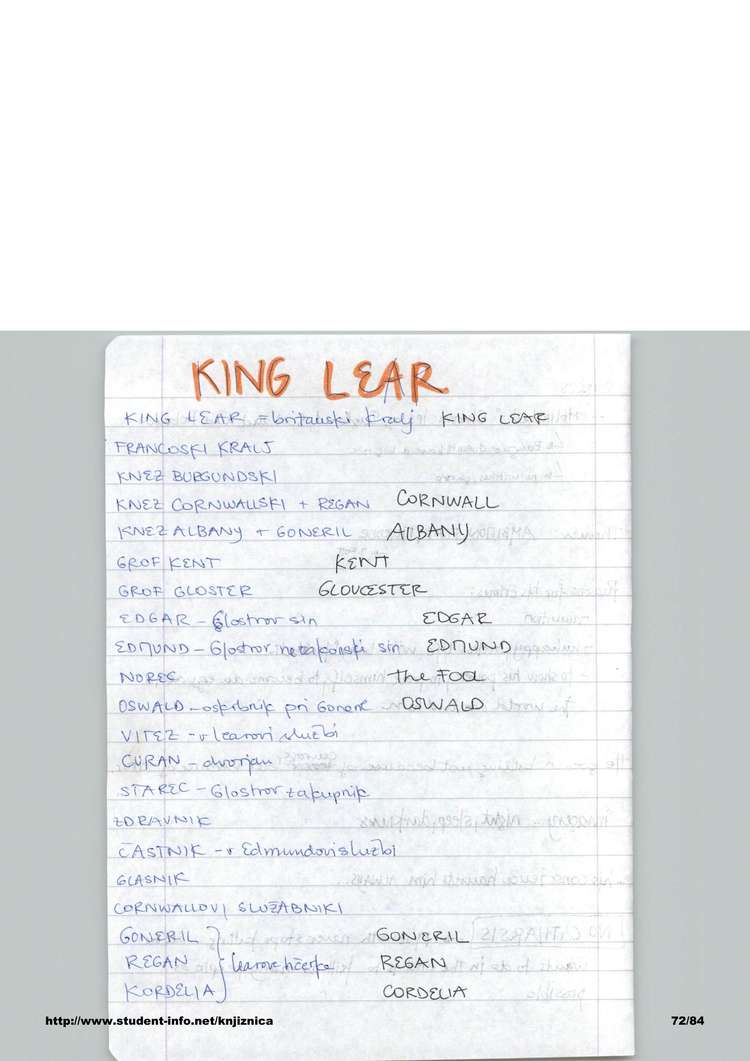 KING LEAR
KING LEAR = britanski kralj KING LEAR
FRANCOSKI KRALJ
KNEZ BURGUNDSKI
KNEZ CORNWALLSKI + REGAN CORNWALL
KNEZ ALBANY + GONERIL ALBANY
GROF KENT KENT
GROF GLOSTER GLOUCESTER
EDGAR - Glostrov sin EDGAR
EDMUND - Glostrov nezakonski sin EDMUND
NOREC the FOOL
OSWALD - oskrbnik pri Goneril OSWALD
VITEZ - v learovi službi
CURAN - dvorjan
STAREC - Glostrov zakupnik
ZDRAVNIK
ČASTNIK - v Edmundovi službi
GLASNIK
CORNWALLOVI SLUŽABNIKI
GONERIL GONERIL
REGAN learove hčerke REGAN
KORDELIA CORDELIA
http://www.student-info.net/knjiznica 72/84